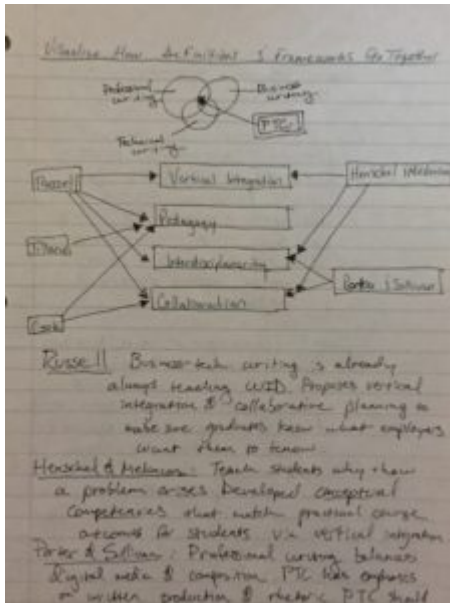 Visualize How Definitions & Frameworks Go Together
Professional writing
Business writing
PTC
Technical writing
Russell
Vertical Integration
Henschel
Pedagogy
Interdisciplinarity
Porter & Sullivan
Collaboration
Cook
Russell Business-tech writing is already
always teaching WID. Proposes vertical
integration & collaborative planning to
make sure graduates know what employers
want them to know.
Henschel & : Teach students why & how
a problem arises Developed conceptual
competencies that match practical course
outcomes for students via vertical integration
Porter & Sullivan: Professional writing balances
digital media & composition. PTC emphasis
on written production & rhetoric PTC should